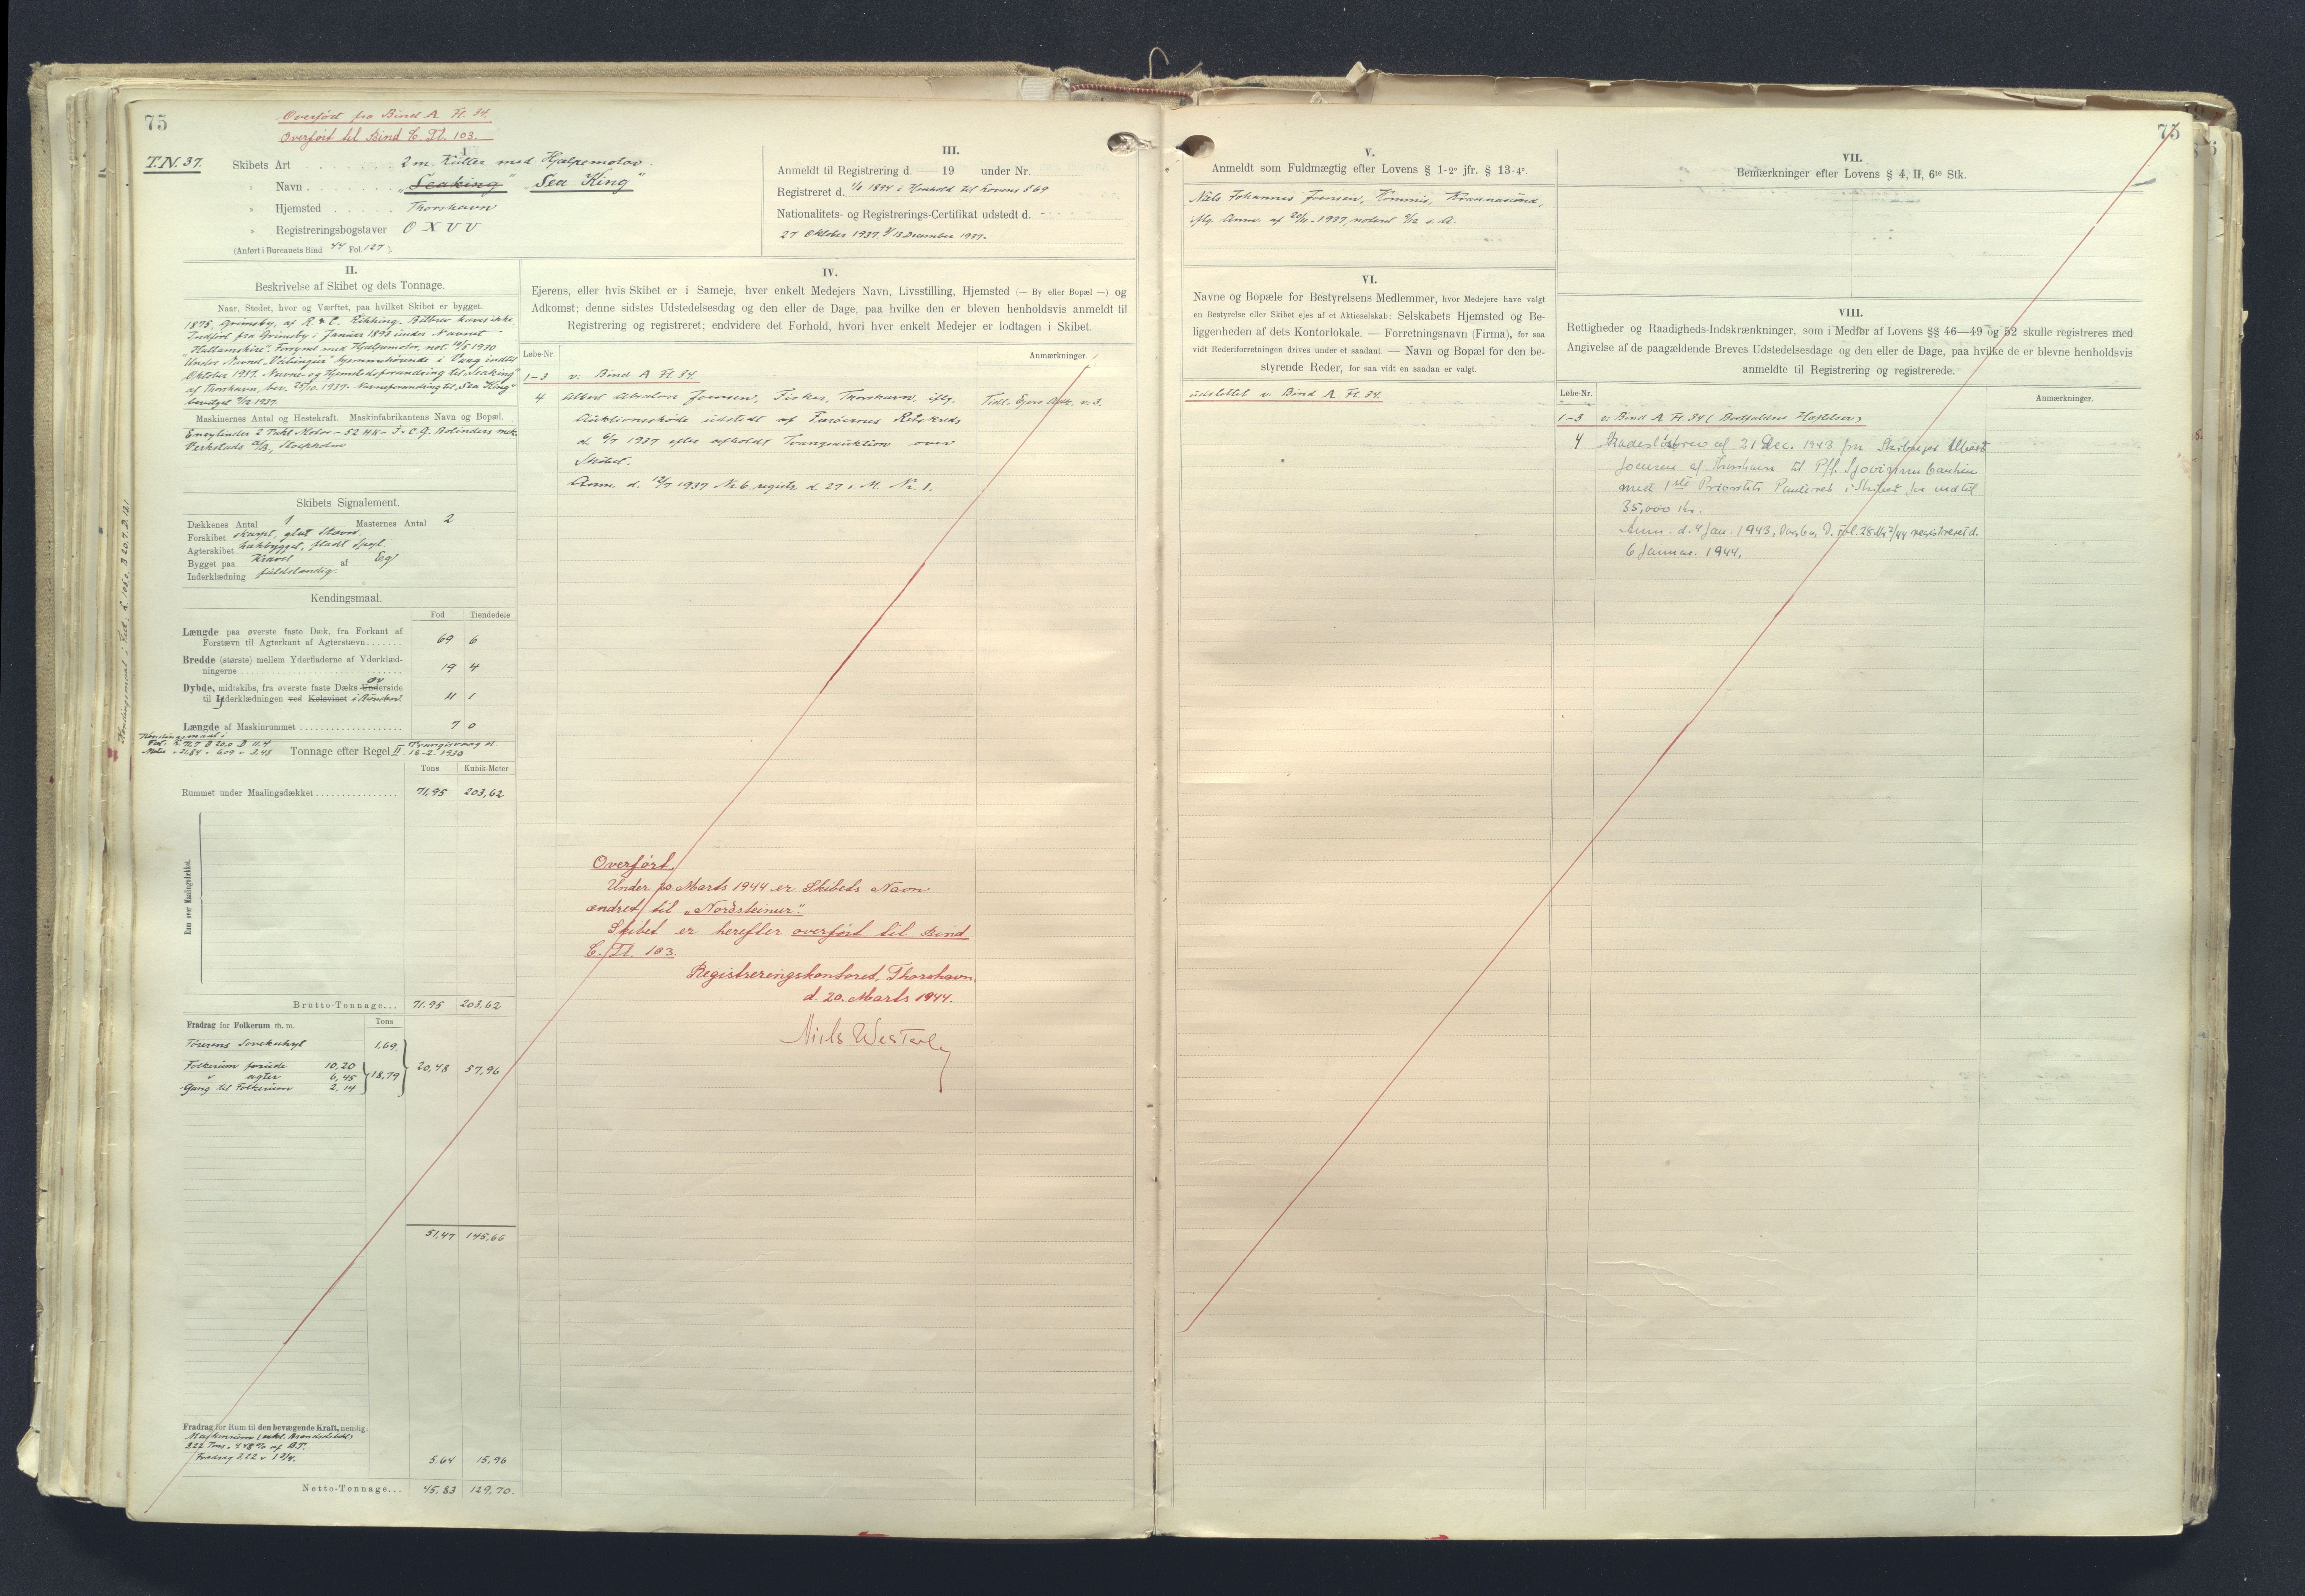 75
Overført fra Bind A Fl. 34.
Overført til Bind C. Fl. 103.
T.N. 37.
I
Skibets Art 2 m. Kutter med Hjælpemotor.
" Navn "Seaking" "Sea King"
" Hjemsted Thorshavn
" Registreringsbogstaver O X V V
(Anført i Bureauets Bind 44 Fol. 127).
II.
Beskrivelse af Skibet og dets Tonnage.
Naar, Stedet, hvor og Værftet, paa hvilket Skibet er bygget.
1875, Grimsby, af R. & C. Kikking. Bilbrev haves ikke
Indført fra Grimsby i Januar 1893 under Navnet
"Hallamshire". Forsynet med Hjælpemotor, not. 10/5 1930
Under Navnet "Vikingur" hjemmehørende i Vaag indtil
Oktober 1937. Navne- og Hjemstedsforandring til "Seaking"
af Thorshavn, bev. 25/10. 1937. Navneforandring til "Sea King"
bevilget 9/12 1937.
Maskinernes Antal og Hestekraft. Maskinfabrikantens Navn og Bopæl.
Encylinder 2 Takt Motor - 52 HK - J. & C. G. Bolinders mek.
Verkstads A/B, Stockholm
Skibets Signalement.
Dækkenes Antal 1 Masternes Antal 2
Forskibet skarpt, glat Stævn.
Agterskibet hækbygget, fladt Spejl.
Bygget paa Kravel af Eg
Inderklædning fuldstændig.
Kendingsmaal.
Fod Tiendedele
Længde paa øverste faste Dæk, fra Forkant af
Forstævn til Agterkant af Agterstævn 69 6
Bredde (største) mellem Yderfladerne af Yderklæd-
ningerne 19 4
Dybde, midtskibs, fra øverste faste Dæks Underside
til Yderklædningen ved Kølsvinet i Rønsten 11 1
Længde af Maskinrummet 7 0
Kendingsmaal i
Fod: L 71,7 B 20,0 D 11,4
Meter " 21,84 " 6,09 " 3,48
Tonnage efter Regel II Trangisvaag d.
18-2. 1930
Tons Kubik-Meter
Rummet under Maalingsdækket 71,95 203,62
Rum over Maalingsdækket.
Brutto-Tonnage... 71.95 203,62
Fradrag for Folkerum m. m. Tons
Førerens Sovelukaf 1,69
Folkerum forude 10,20
" agter 6,45 18,79 20,48 57,96
Gang til Folkerum 2,14
51,47 145,66
Fradrag for Rum til den bevægende Kraft, nemlig:
Maskinrum (enkl. Brændselsbeh.)
3.22 Tons = 4.48 % af B.T.
Fradrag 3.22 × 1 3/4. 5,64 15,96
Netto-Tonnage... 45,83 129,70.
III.
Anmeldt til Registrering d. — 19 under Nr.
Registreret d. 1/1 1894 i Henhold til Lovens § 69
Nationalitets- og Registrerings-Certifikat udstedt d.
27 Oktober 1937. 13 December 1937.
IV.
Ejerens, eller hvis Skibet er i Sameje, hver enkelt Medejers Navn, Livsstilling, Hjemsted (— By eller Bopæl —) og
Adkomst; denne sidstes Udstedelsesdag og den eller de Dage, paa hvilke den er bleven henholdsvis anmeldt til
Registrering og registreret; endvidere det Forhold, hvori hver enkelt Medejer er lodtagen i Skibet.
Løbe-Nr. Anmærkninger.
1-3 v. Bind A Fl. 34.
4 Albert Joensen, Fisker, Thorshavn, iflg. Tidl. Ejers Adk. v. 3.
Auktionsskøde udstedt af Færøernes Retskreds
d. 6/7 1937 efter afholdt Tvangsauktion over
Skibet.
Anm. d. 12/7 1937 Nr. 6 registr. d 27 s. M. Nr. 1.
Overført.
Under 20. Marts 1944 er Skibets Navn
ændret til "Nordsteinur".
Skibet er herefter overført til Bind
C. Fl. 103.
Registreringskontoret, Thorshavn,
d. 20. Marts 1944.
Niels Westerby
V.
Anmeldt som Fuldmægtig efter Lovens § 1-2° jfr. § 13-4°.
Niels Johannes Joensen, Kommis, Kvannasund,
iflg. Anm. af 29/11-1937, noteret 9/12 s. A.
VI.
Navne og Bopæle for Bestyrelsens Medlemmer, hvor Medejere have valgt
en Bestyrelse eller Skibet ejes af et Aktieselskab; Selskabets Hjemsted og Be-
liggenheden af dets Kontorlokale. — Forretningsnavn (Firma), for saa
vidt Rederiforretningen drives under et saadant. — Navn og Bopæl for den be-
styrende Reder, for saa vidt en saadan er valgt.
udslettet v. Bind A. Fl. 34.
75
VII.
Bemærkninger efter Lovens § 4, II, 6te Stk.
VIII.
Rettigheder og Raadigheds-Indskrænkninger, som i Medfør af Lovens §§ 46—49 og 52 skulle registreres med
Angivelse af de paagældende Breves Udstedelsesdage og den eller de Dage, paa hvilke de er blevne henholdsvis
anmeldte til Registrering og registrerede.
Løbe-Nr. Anmærkninger.
1-3 v. Bind A Fl. 34 (Bortfaldne Hæftelser)
4 Skadesløsbrev af 21 Dec. 1943 fra Skibsejer Albert
Joensen af Thorshavn til P/f. Sjovinnu bankin
med 1ste Prioritets Panteret i Skibet for indtil
35,000 Kr.
Anm. d. 4 Jan. 1943, Dagb. D. fol. 28 Nr 2/44 registreret d.
6 Januar. 1944.